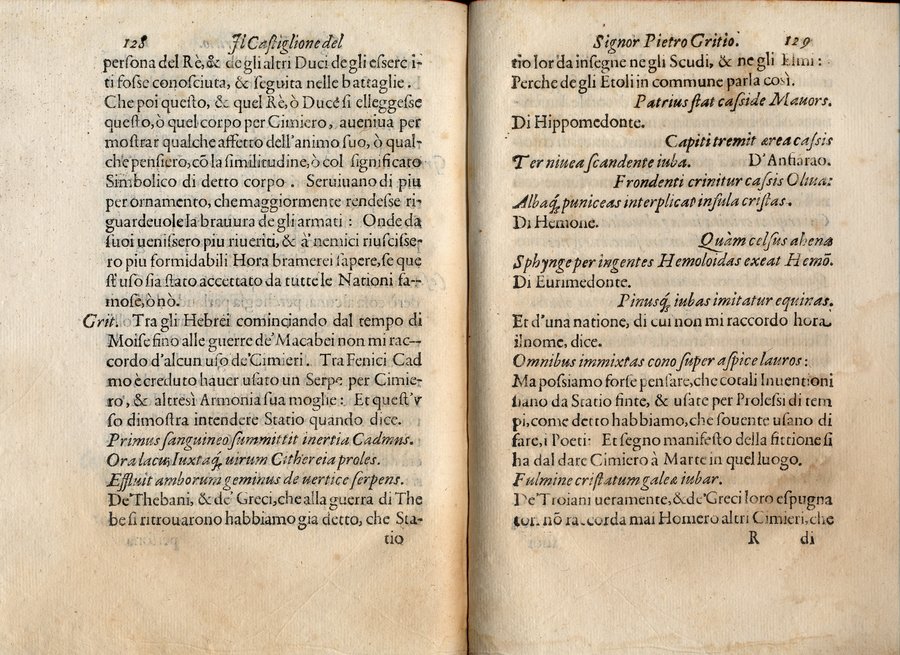 128 Il Castiglione del
persona del Rè, & de gli altri Duci de gli essere i-
ti fosse conosciuta, & seguita nelle battaglie.
Che poi questo, & quel Rè, ò Duce si elleggesse
questo, ò quel corpo per Cimiero, aueniua per
mostrar qualche affetto dell'animo suo, ò qual-
che pensiero, cō la similitudine, ò col significato
Simbolico di detto corpo. Seruiuano di piu
per ornamento, che maggiormente rendesse ri-
guardeuole la brauura de gli armati: Onde da
suoi uenissero piu riueriti, & a' nemici riuscisse-
ro piu formidabili Hora bramerei sapere, se que
st'uso sia stato accettato da tutte le Nationi fa-
mose, ò nò.
Grit. Tra gli Hebrei cominciando dal tempo di
Moise fino alle guerre de' Macabei non mi rac-
cordo d'alcun uso de' Cimieri. Tra Fenici Cad
mo è creduto hauer usato un Serpe per Cimie-
ro, & altresì Armonia sua moglie: Et quest'v
so dimostra intendere Statio quando dice.
Primus sanguineo summittit inertia Cadmus.
Ora lacu, Iuxtaq́; uirum Cithereia proles.
Effluit amborum geminus de uertice serpens.
De' Thebani, & de' Greci, che alla guerra di The
be si ritrouarono habbiamo gia detto, che Sta-
tio
Signor Pietro Gritio. 129
tio lor da insegne ne gli Scudi, & ne gli Elmi:
Perche de gli Etoli in commune parla così.
Patrius stat casside Mauors.
Di Hippomedonte.
Capiti tremit ærea cassis
Ter niuea scandente iuba. D'Anfiarao.
Frondenti crinitur cassis Oliua:
Albaq́; puniceas interplicat insula cristas.
Di Hemone.
Quàm celsus ahena
Sphynge per ingentes Hemoloidas exeat Hemō.
Di Eurimedonte.
Pinusq́; iubas imitatur equinas.
Et d'una natione, di cui non mi raccordo hora
il nome, dice.
Omnibus immixtas cono super aspice lauros:
Ma possiamo forse pensare, che cotali Inuentioni
siano da Statio finte, & usate per Prolessi di tem
pi, come detto habbiamo, che souente usano di
fare, i Poeti: Et segno manifesto della fittione si
ha dal dare Cimiero à Marte in quel luogo.
Fulmine cristatum galeæ iubar.
De' Troiani ueramente, & de' Greci loro espugna
tori nō raccorda mai Homero altri Cimieri, che
R di